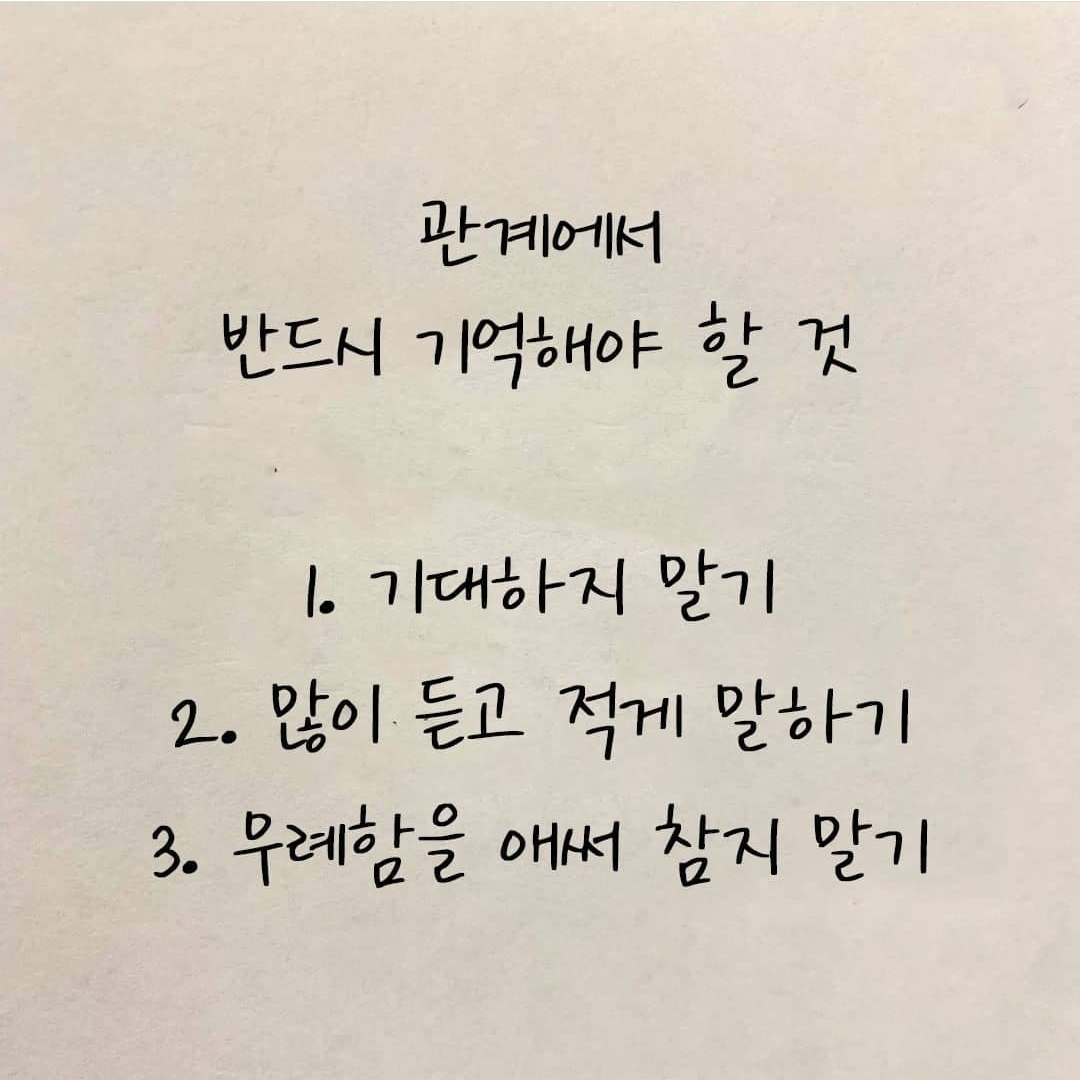 관계에서
반드시 기억해야 할 것
1. 기대하지 말기
2. 많이 듣고 적게 말하기
3. 무례함을 애써 참지 말기